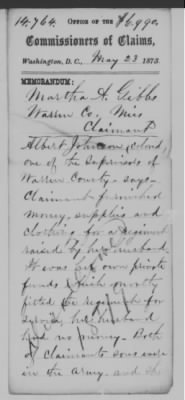 14.764. OFFICE OF THE $6,990.
Commissioners of Claims,
Washington, D. C., May 23 1873.
MEMORANDUM:
Martha A. Gibbs
Warren Co., Miss
Claimant
Albert Johnson (colored),
one of the Supervisors of
Warren County - says -
Claimant furnished
money, supplies and
clothing for a regiment
raised by her husband
It was her own private
funds which mostly
fitted the regiment for
service, her husband
had no money. Both
of Claimants sons were
in the Army - and she